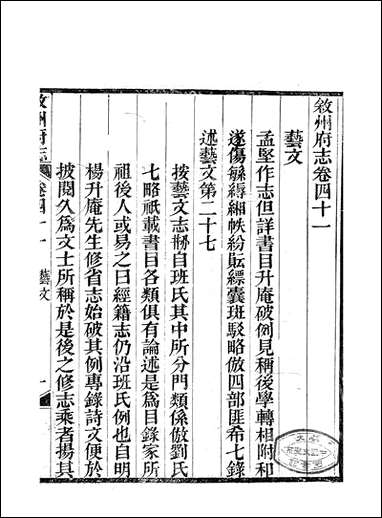 敘州府志卷四十一
藝文
孟堅作志但詳書目升庵破例見稱後學轉相附和
遂傷縟縟緗帙紛紜縹囊斑駁略倣四部匪希七錄
述藝文第二十七
按藝文志肪自班氏其中所分門類係倣劉氏
七略祇載書目各類俱有論述是爲目錄家所
祖後人或易之曰經籍志仍沿班氏例也自明
楊升庵先生修省志始破其例專錄詩文便於
披閱久爲文士所稱於是後之修志乘者揚其
州府志
卷四十一 藝文
一